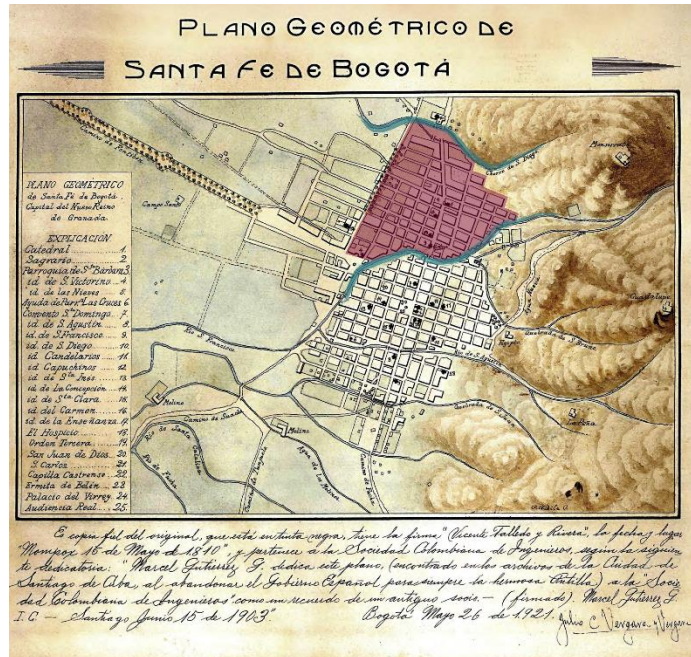 PLANO GEOMÉTRICO DE
SANTA FE DE BOGOTÁ
PLANO GEOMETRICO
de Santa Fé de Bogotá.
Capital del Nuevo Reino
de Granada.
EXPLICACION
Catedral 1.
Sagrario 2.
Parroquia de Sta Bárbara 3.
id. de S. Victorino 4.
id. de las Nieves 5.
Ayuda de Parra. Las Cruces 6
Convento Sto Domingo 7.
id. de S. Agustin 8.
id. de S. Francisco 9.
id. de S. Diego 10.
id. Candelarios 11.
id. Capuchinos 12.
id. de Sta Inés 13.
id. de La Concepción 14.
id. de Sta Clara 15.
id. del Carmen 16.
id. de la Enseñanza 17.
El Hospicio 18.
Orden Tercera 19.
San Juan de Dios 20
S. Carlos 21
Capilla Castrense 22
Ermita de Belén 23
Palacio del Virrey 24.
Audiencia Real 25.
Camino de Fontibón
Campo Santo
Monserrate
Guadalupe
Rio S. Francisco
Rio de S. Agustin
Egipto
Molino
Molino
Es copia fiel del original, que está en tinta negra, tiene la firma "Vicente Talledo y Rivera", la fecha y lugar
Mompox 15 de Mayo de 1810" y pertenece a la Sociedad Colombiana de Ingenieros, según la siguien-
te dedicatoria: "Marcel Gutiérrez G. dedica este plano, (encontrado en los archivos de la Ciudad de
Santiago de Cuba, al abandonar el Gobierno Español para siempre la hermosa Antilla) a la Socie-
dad Colombiana de Ingenieros" como un recuerdo de un antiguo socio — (firmado). Marcel Gutiérrez G.
I. C. — Santiago Junio 15 de 1903" Bogotá Mayo 26 de 1.921.
Julio C Vergara y Vergara